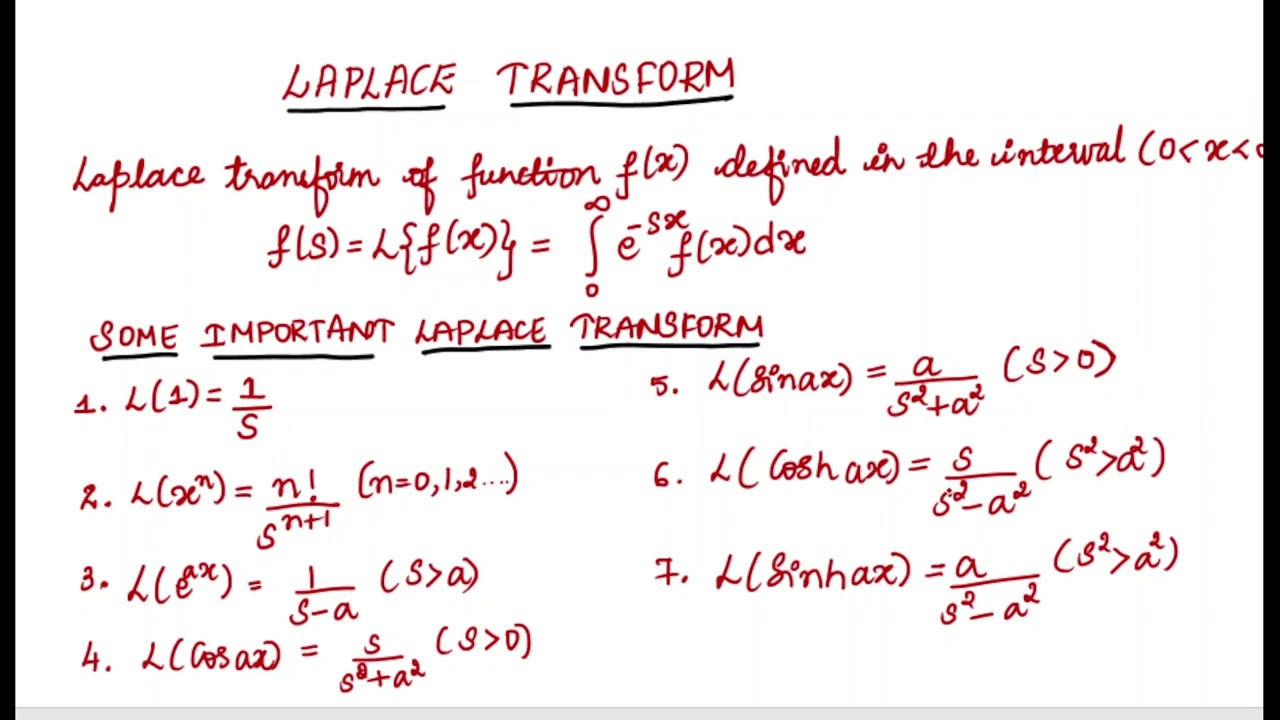 LAPLACE TRANSFORM
Laplace transform of function f(x) defined in the interval (0<x<
f(s) = L{f(x)} = ∫₀^∞ e^{-sx} f(x)dx
SOME IMPORTANT LAPLACE TRANSFORM
1. L(1) = 1/s
2. L(xⁿ) = n!/s^{n+1} (n=0,1,2....)
3. L(e^{ax}) = 1/(s-a) (s>a)
4. L(cos ax) = s/(s²+a²) (s>0)
5. L(sinax) = a/(s²+a²) (s>0)
6. L(cosh ax) = s/(s²-a²) (s²>a²)
7. L(sinhax) = a/(s²-a²) (s²>a²)